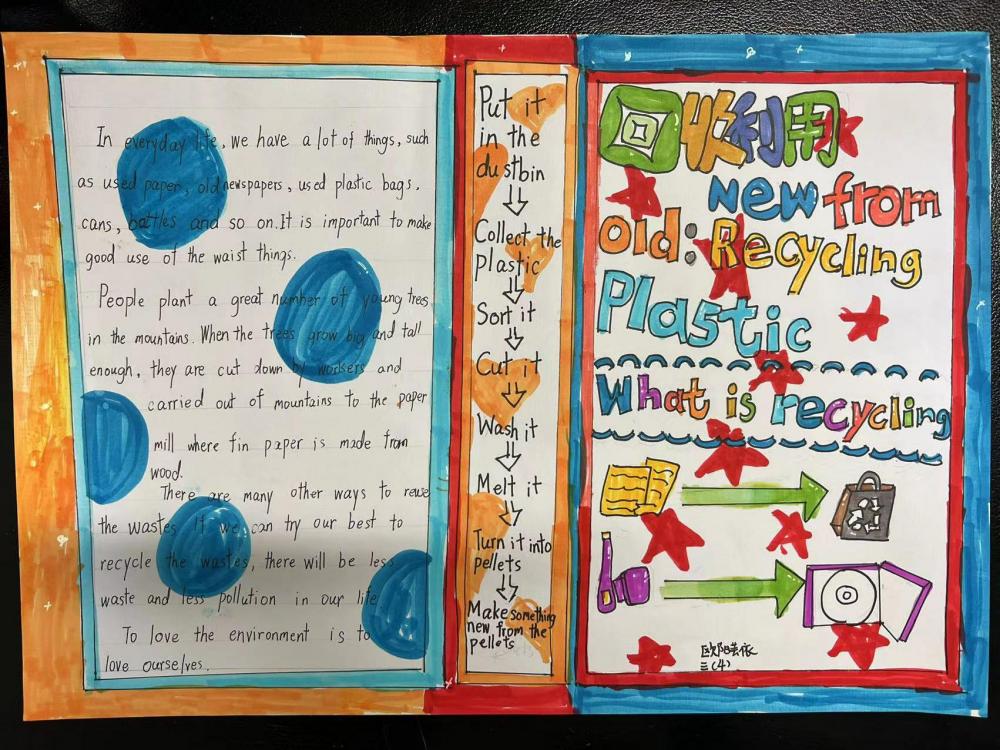 In everyday life, we have a lot of things, such
as used paper, old newspapers, used plastic bags,
cans, battles and so on. It is important to make
good use of the waist things.
People plant a great number of young trees
in the mountains. When the trees grow big and tall
enough, they are cut down by workers and
carried out of mountains to the paper
mill where fin paper is made from
wood.
There are many other ways to reuse
the wastes. If we can try our best to
recycle the wastes, there will be less
waste and less pollution in our life
To love the environment is to
love ourselves.
Put it
in the
dustbin
Collect the
plastic
Sort it
Cut it
Wash it
Melt it
Turn it into
pellets
Make something
new from the
pellets
回收利用
new from
old: Recycling
Plastic
What is recycling
三(4)